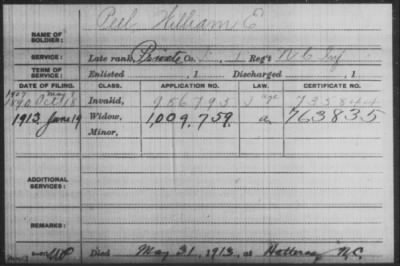 Peel William E
NAME OF SOLDIER:
SERVICE: Late rank, Private Co. 1 Reg't N C Inf
TERM OF SERVICE: Enlisted , 1 Discharged , 1
DATE OF FILING. CLASS. APPLICATION NO. LAW. CERTIFICATE NO.
1907 May
1890 Oct 18 Invalid, 986793 J age
1913 June 19 Widow, 1,009,759. a 763835
Minor,
ADDITIONAL SERVICES:
REMARKS:
Died May 31, 1913, at Hatteras N.C.